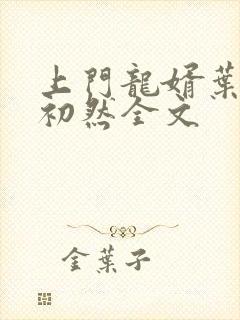 上門龍婿葉
初然全文
金葉子